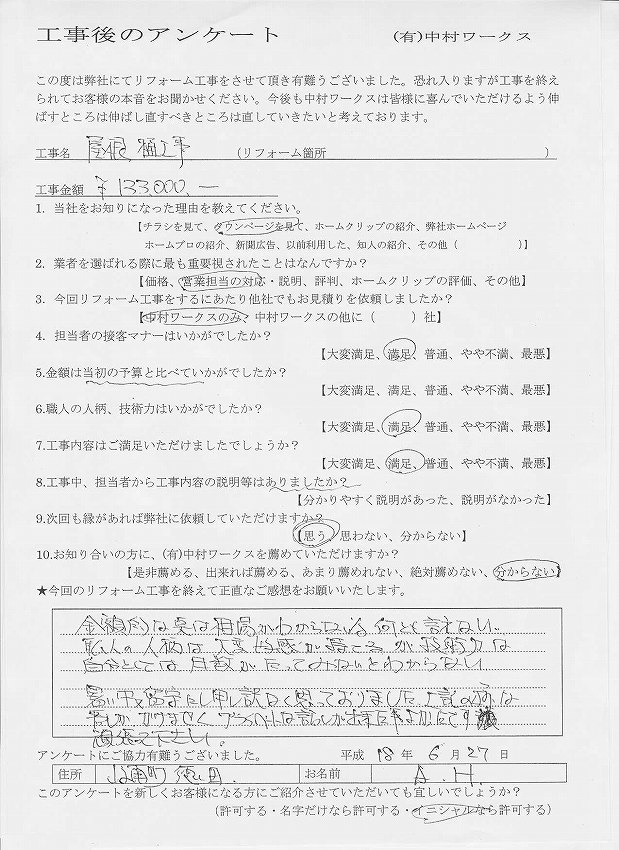 工事後のアンケート (有)中村ワークス
この度は弊社にてリフォーム工事をさせて頂き有難うございました。恐れ入りますが工事を終え
られてお客様の本音をお聞かせください。今後も中村ワークスは皆様に喜んでいただけるよう伸
ばすところは伸ばし直すべきところは直していきたいと考えております。
工事名 屋根 樋工事 (リフォーム箇所 )
工事金額 ¥133,000.ー
1. 当社をお知りになった理由を教えてください。
【チラシを見て、タウンページを見て、ホームクリップの紹介、弊社ホームページ
ホームプロの紹介、新聞広告、以前利用した、知人の紹介、その他（ ）】
2. 業者を選ばれる際に最も重要視されたことはなんですか？
【価格、営業担当の対応・説明、評判、ホームクリップの評価、その他】
3. 今回リフォーム工事をするにあたり他社でもお見積りを依頼しましたか？
【中村ワークスのみ、中村ワークスの他に（ ）社】
4. 担当者の接客マナーはいかがでしたか？
【大変満足、満足、普通、やや不満、最悪】
5.金額は当初の予算と比べていかがでしたか？
【大変満足、満足、普通、やや不満、最悪】
6.職人の人柄、技術力はいかがでしたか？
【大変満足、満足、普通、やや不満、最悪】
7.工事内容はご満足いただけましたでしょうか？
【大変満足、満足、普通、やや不満、最悪】
8.工事中、担当者から工事内容の説明等はありましたか？
【分かりやすく説明があった、説明がなかった】
9.次回も縁があれば弊社に依頼していただけますか？
【思う、思わない、分からない】
10.お知り合いの方に、(有)中村ワークスを薦めていただけますか？
【是非薦める、出来れば薦める、あまり薦めれない、絶対薦めない、分からない】
★今回のリフォーム工事を終えて正直なご感想をお願いいたします。
金額的な点は相場がわからない為何とも言えない。
職人の人柄は大変好感が持てるが技術力は
自分としては月数がたってみないとわからない
暑い中を留守にし申し訳なく思っておりました。上記の
しか 来ませんでしたが
頑張って下さい。
アンケートにご協力有難うございました。 平成 18 年 6 月 27 日
住所 徳田. お名前 A.H.
このアンケートを新しくお客様になる方にご紹介させていただいても宜しいでしょうか？
（許可する・名字だけなら許可する・イニシャルなら許可する）